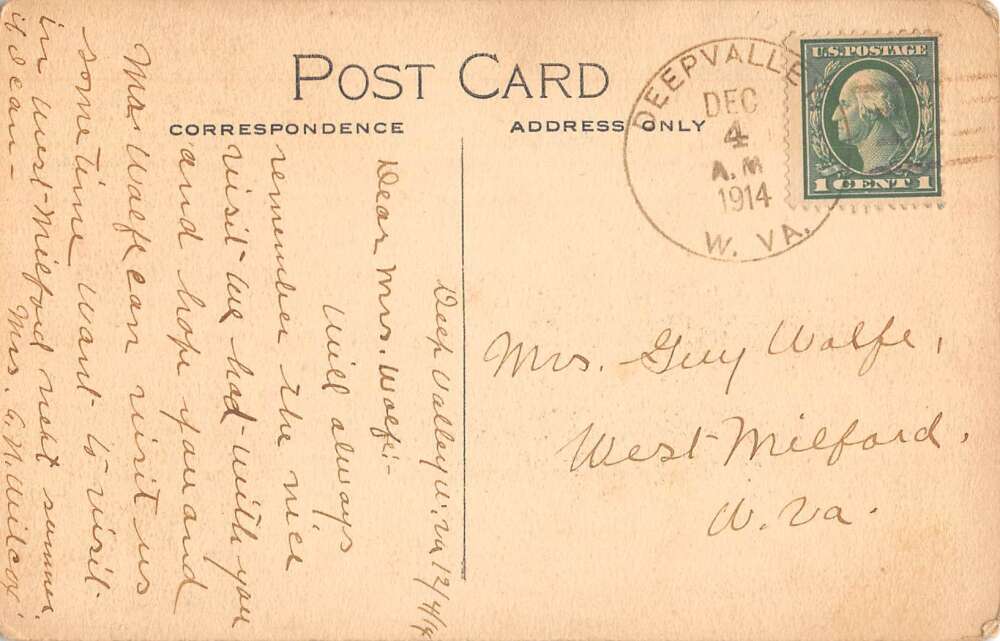 POST CARD
CORRESPONDENCE
ADDRESS ONLY
DEEPVALLE
DEC
4
A.M
1914
W. VA.
U.S. POSTAGE
1 CENT 1
Deep Valley W. Va 12/4/14
Dear Mrs. Wolfe:-
Will always
remember the nice
visit we had with you
and hope you and
Mrs Wolfe can visit us
sometime want to visit
in West Milford next summer
if I can -
Mrs. Wilcox
Mrs. Guy Wolfe,
West Milford,
W. Va.